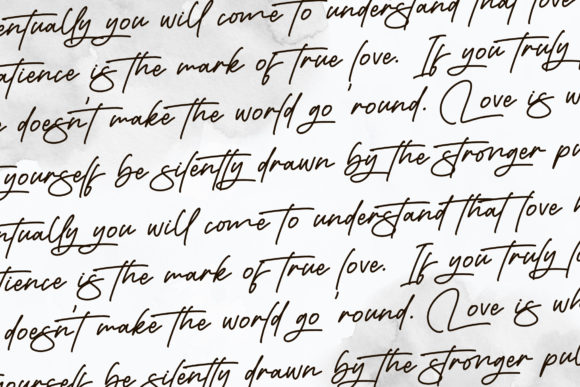 entually you will come to understand that love
atience is the mark of true love. If you truly
doesn't make the world go 'round. Love is w
yourself be silently drawn by the stronger pu
ntually you will come to understand that love h
tience is the mark of true love. If you truly l
doesn't make the world go 'round. Love is wh
yourself be silently drawn by the stronger pul